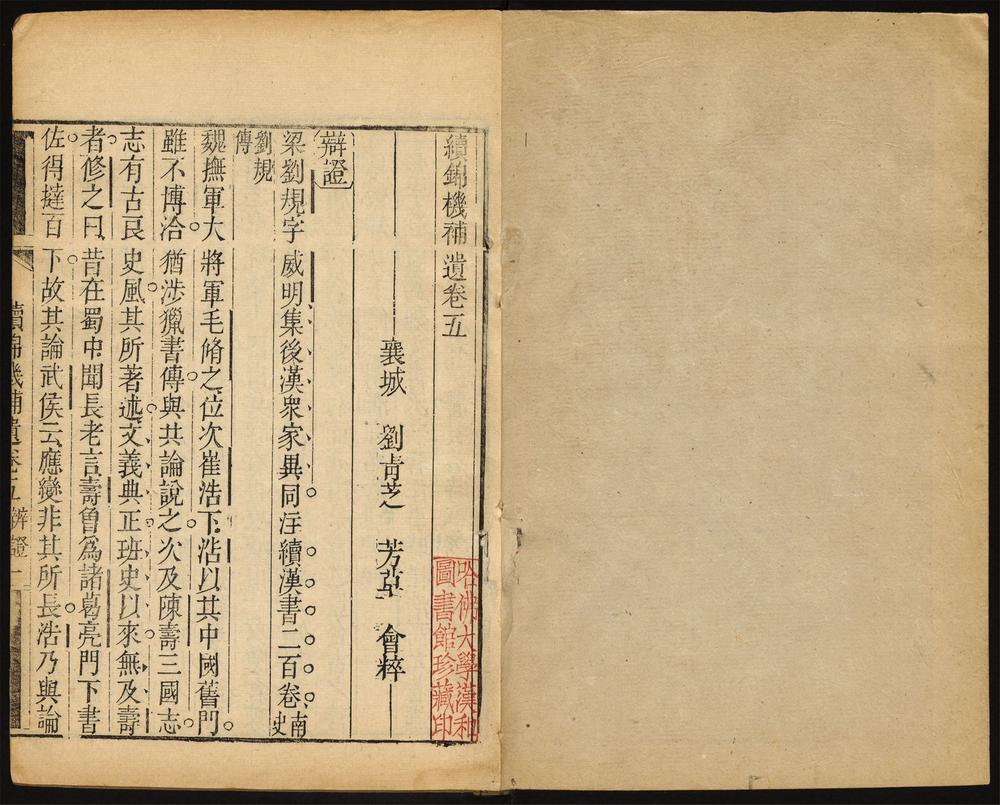 續錦機補遺卷五
襄城 劉青芝 芳草 會粹
哈佛大學漢和
圖書館珍藏印
辯證
梁劉規字威明集後漢衆家異同注續漢書二百卷南史
劉規傳
魏撫軍大將軍毛脩之位次崔浩下浩以其中國舊門
雖不博洽猶涉獵書傳與共論說之次及陳壽三國志
志有古良史風其所著述文義典正班史以來無及壽
者修之曰昔在蜀中聞長老言壽曾爲諸葛亮門下書
佐得撻百下故其論武侯云應變非其所長浩乃與論
續錦機補遺卷五 辯證 一